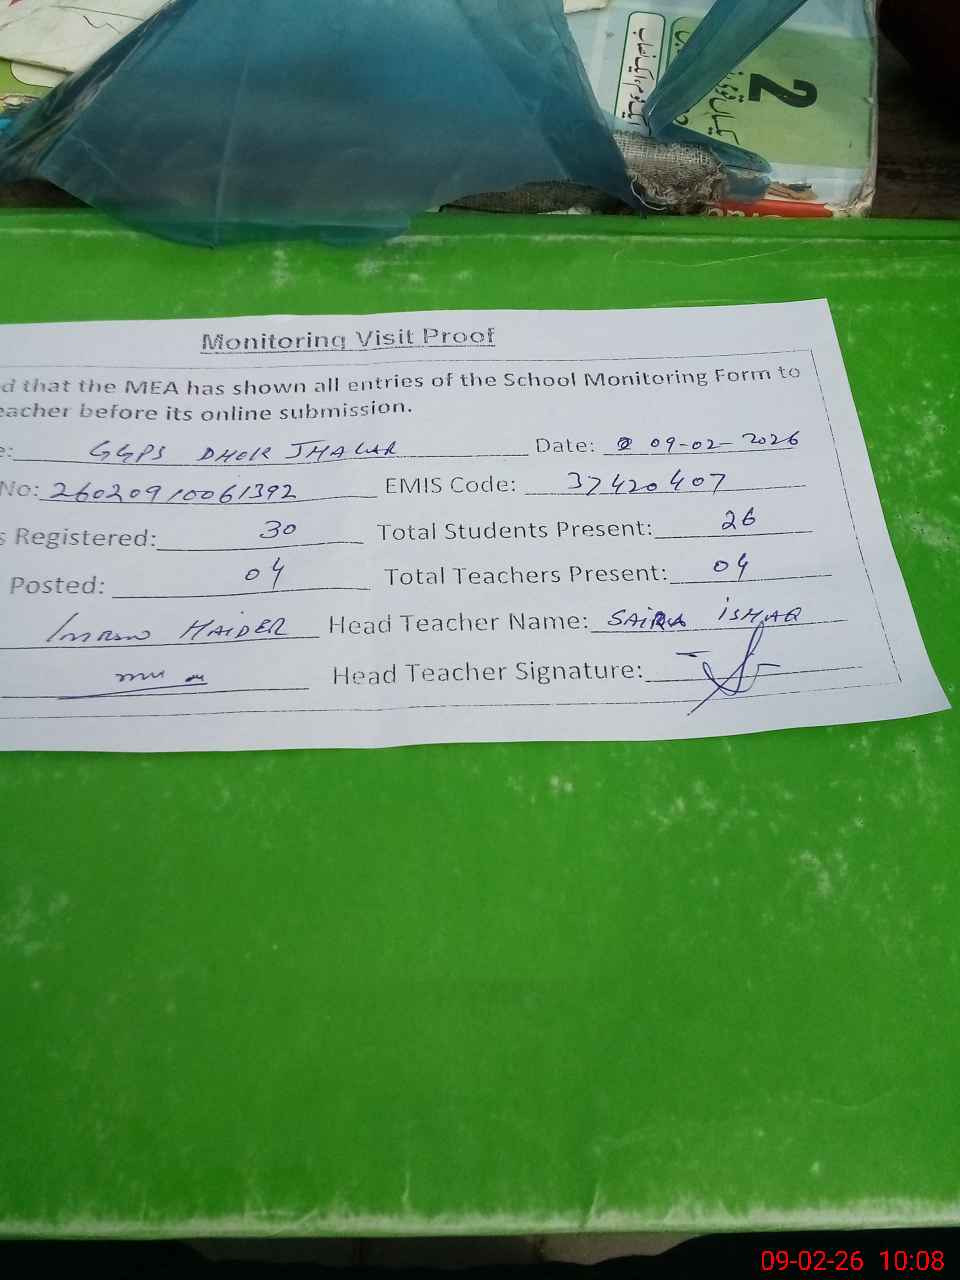 2
Monitoring Visit Proof
d that the MEA has shown all entries of the School Monitoring Form to
eacher before its online submission.
e: GGPS DHOK JHALAR Date: 09-02-2026
No: 26020910061392 EMIS Code: 37420407
s Registered: 30 Total Students Present: 26
Posted: 04 Total Teachers Present: 04
IMRAN HAIDER Head Teacher Name: SAIRA ISHAQ
Head Teacher Signature:
09-02-26 10:08